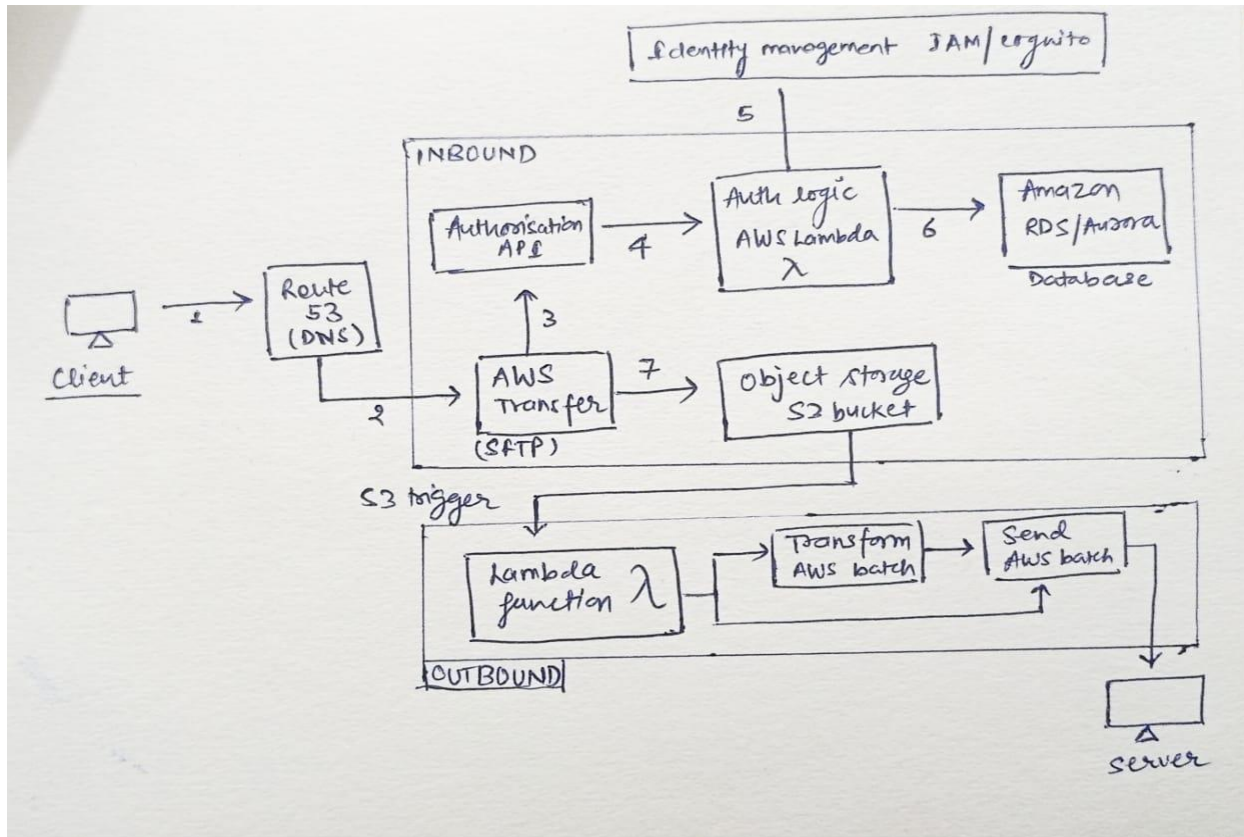 Identity management IAM/cognito
5
INBOUND
Authorisation
API
4
Auth logic
AWS Lambda
λ
6
Amazon
RDS/Aurora
Database
Client
1
Route
53
(DNS)
2
3
AWS
Transfer
(SFTP)
7
Object storage
S3 bucket
S3 trigger
Lambda
function λ
Transform
AWS batch
Send
AWS batch
OUTBOUND
server